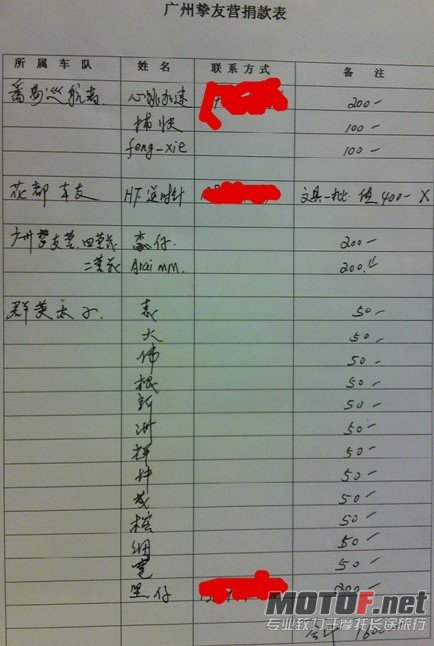 广州挚友营捐款表
所属车队 姓名 联系方式 备注
番禺巡航者 心跳加速 200-
捕快 100-
feng-xie 100-
花都车友 HJ 逆时针 文具一批 值400- X
广州挚友营 四营 仔 200-
二营 Arai mm. 200.-
群英太子 袁 50-
大 50-
伟 50-
根 50-
新 50-
洲 50-
辉 50-
坤 50-
茂 50-
榕 50-
细 50-
50-
黑仔 200-
合计 1600-
MOTOF.net
专业致力于摩托长途旅行